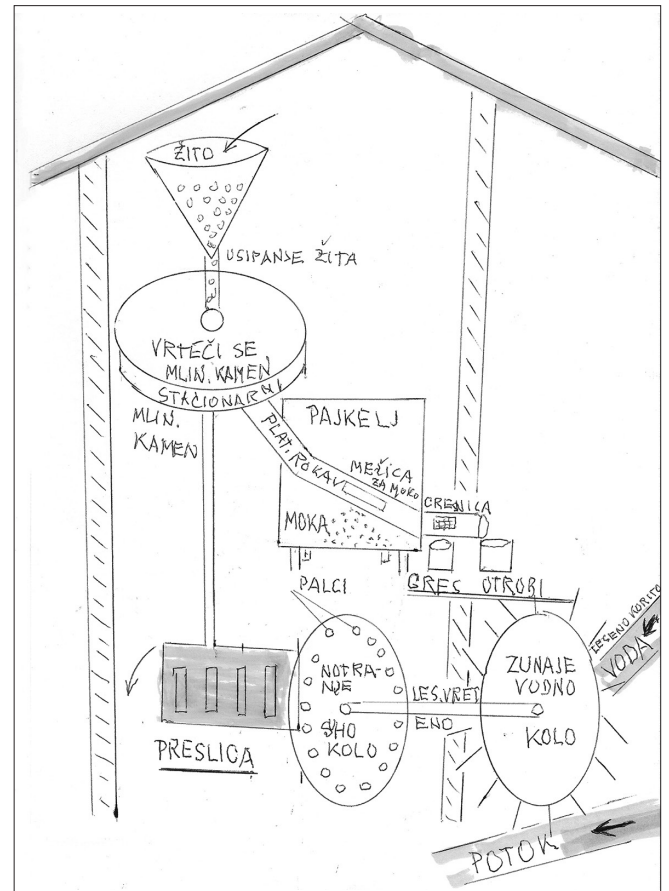 ŽITO
USIPANJE ŽITA
VRTEČI SE
MLIN. KAMEN
STACIONARNI
MLIN.
KAMEN
PAJKELJ
PLAT. ROKAV
MEŽICA
ZA MOKO
MOKA
CRENICA
GRES OTROBI
PALCI
LESENO KORITO
VODA
NOTRA-
NJE
SHO
KOLO
LES. VRET
ENO
ZUNAJE
VODNO
KOLO
PRESLICA
POTOK